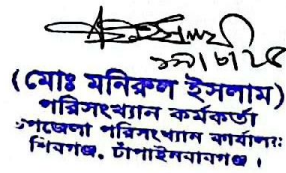 ১৭/৮/২৫
(মোঃ মনিরুল ইসলাম)
পরিসংখ্যান কর্মকর্তা
উপজেলা পরিসংখ্যান কার্যালয়
শিবগঞ্জ, চাঁপাইনবাবগঞ্জ।